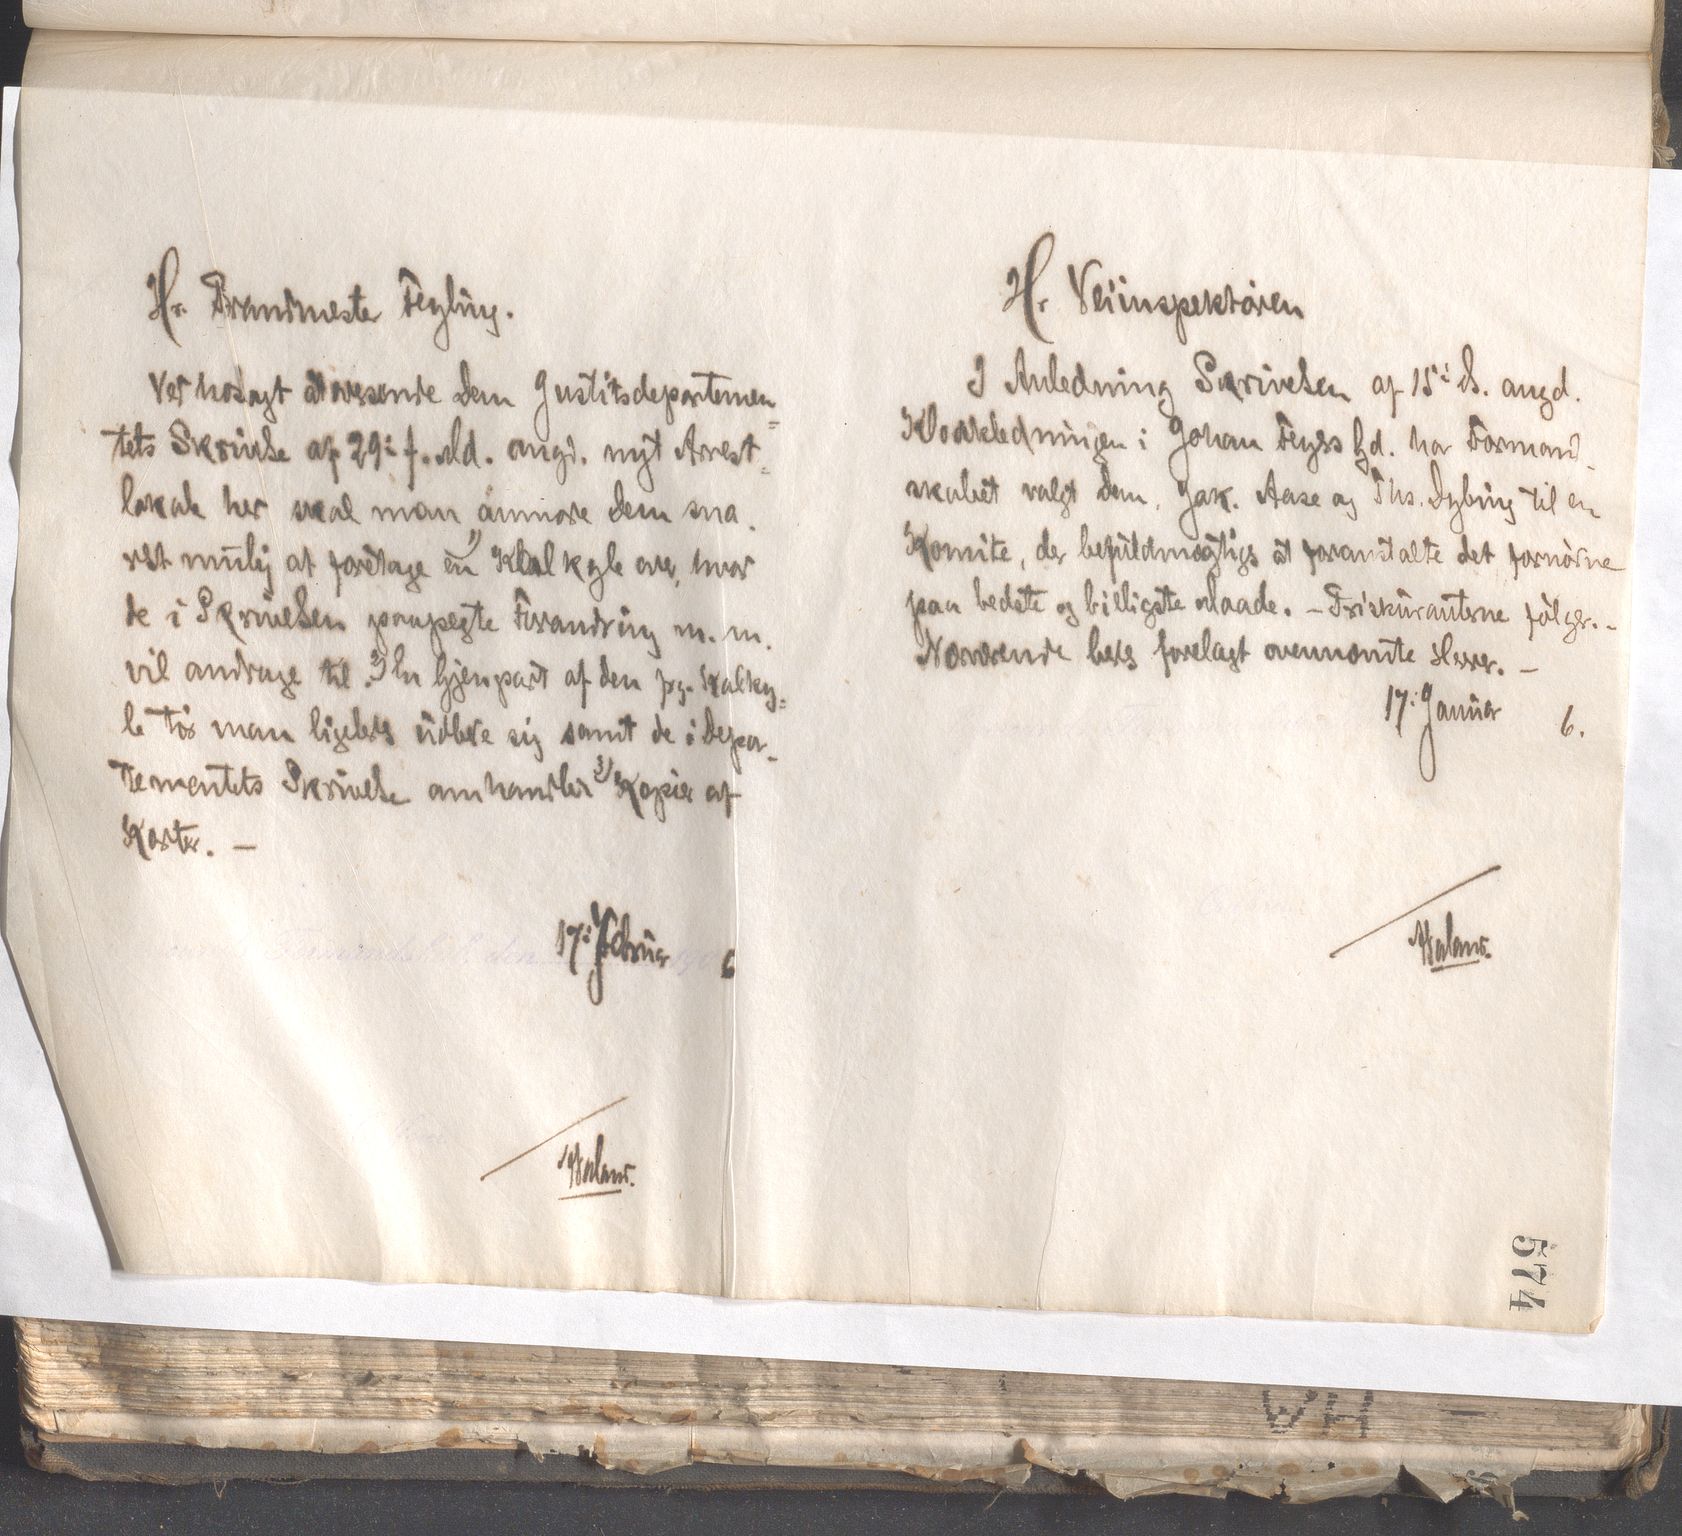 Hr. Brandmester Fegbing.
Vedhosagt at oversende Dem Justitsdepartemen-
tets Skrivelse af 29: f. Md. angd. nyt Arrest-
lokale her skal man anmode Dem sna-
rest mulig at foretage en 1) Kalkyle over, hvor
de i Skrivelsen paapegte Forandring m. m.
vil andrage til. 2) En Gjenpart af den pg. Kalky-
le tør man ligeledes udbede sig samt de i Depar-
tementets Skrivelse omhandlede 3) Kopier af
Karter. —
17: Februar 6
Valand.
Hr. Veiinspektøren
I Anledning Skrivelsen af 15: ds. angd.
Kloakledningen i Johan Feyers Gd. har Formand-
skabet valgt Dem, Jak. Aase og Ths. Dybing til en
Komite, der befuldmægtiges at foranstalte det fornødne
paa bedste og billigste Maade. — Priskuranterne følger. -
Nærværende bedes forelagt ovennævnte Herrer. —
17: Januar 6.
Valand.
574